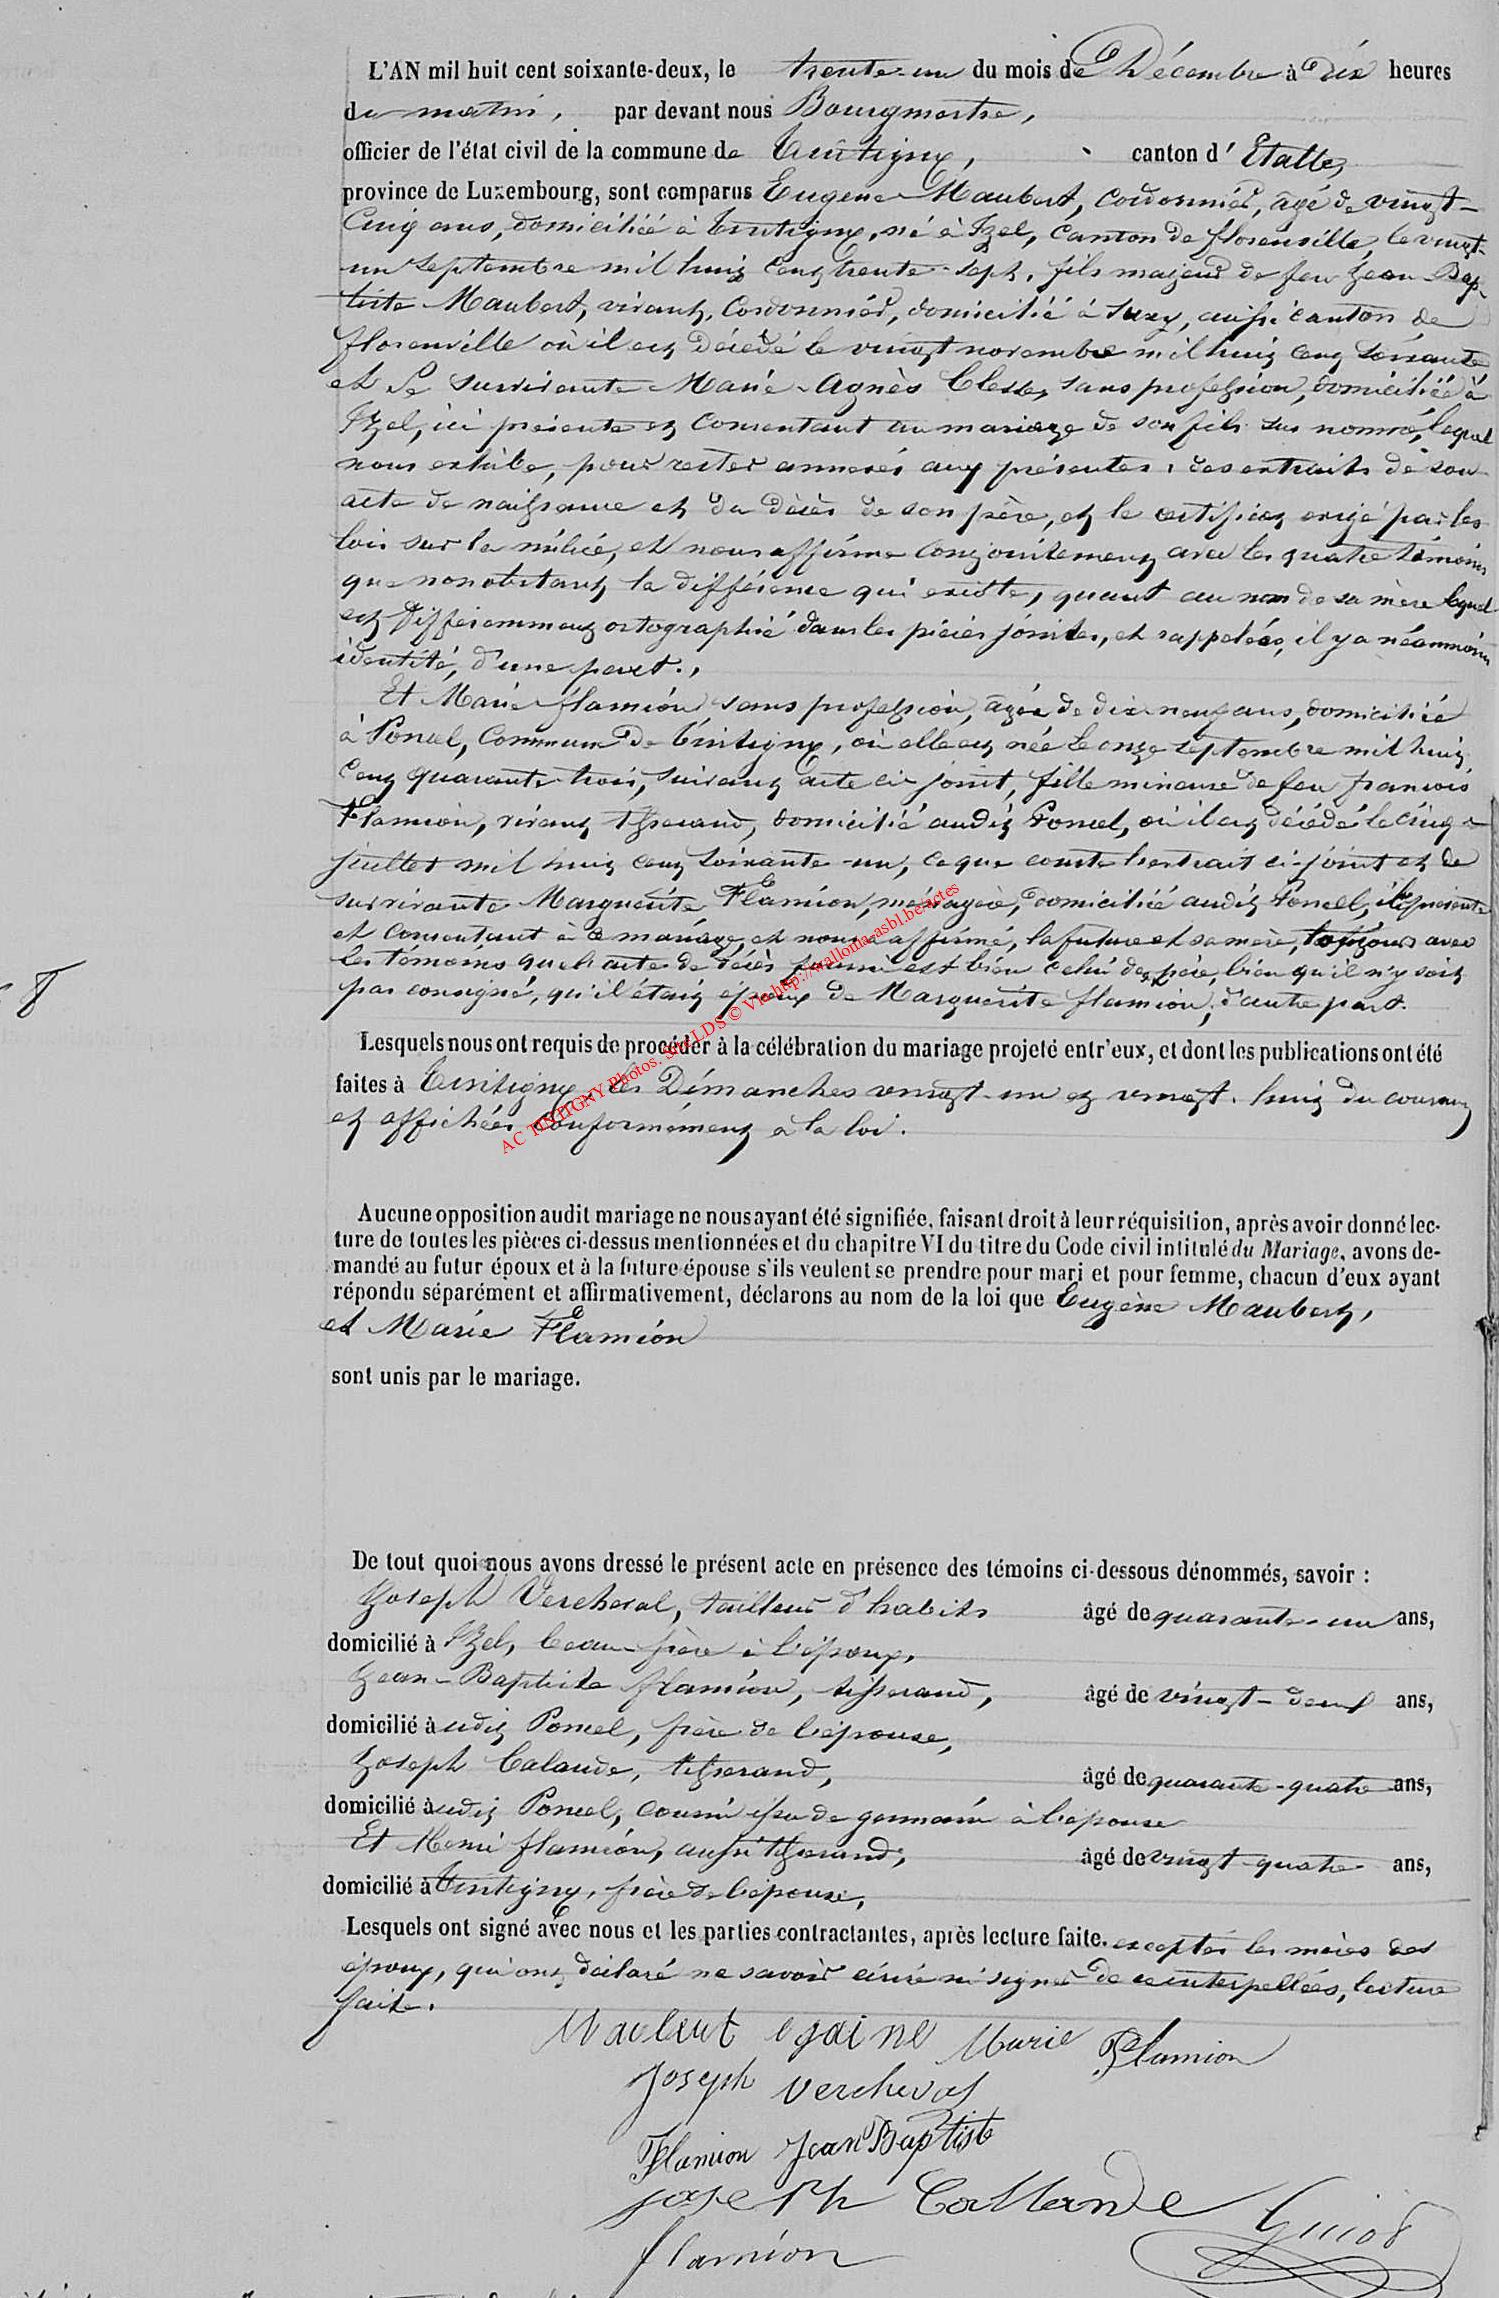 L'AN mil huit cent soixante-deux, le trente-un du mois de Décembre à dix heures
du matin, par devant nous Bourgmestre,
officier de l'état civil de la commune de Tintigny, canton d' Etalle,
province de Luxembourg, sont comparus Eugène Maubert, cordonnier, âgé de vingt-
cinq ans, domicilié à Tintigny, né à Izel, canton de florenville, le vingt-
un septembre mil huit cent trente-sept, fils majeur de feu Jean-Bap-
tiste Maubert, vivant, cordonnier, domicilié à Suxy, aussi canton de
florenville où il est décédé le vingt novembre mil huit cent soixante
et de survivante Marie-Agnès Clesse, sans profession, domiciliée à
Izel, ici présente et consentant au mariage de son fils sus nommé, lequel
nous exhibe, pour rester annexés aux présentes, des extraits de son
acte de naissance et du décès de son père, et le certificat exigé par les
lois sur la milice, et nous affirme conjointement avec les quatre témoins
que nonobstant la différence qui existe, quant au nom de sa mère lequel
est différemment ortographié dans les pièces jointes, et rappelées, il y a néanmoins
identité, d'une part.,
Et Marie flamion sans profession, âgée de dix-neuf ans, domiciliée
à Poncel, Commune de Tintigny, où elle est née le onze septembre mil huit
cent quarante-trois, suivant acte ci-joint, fille mineure de feu françois
Flamion, vivant, tisserand, domicilié audit Poncel, où il est décédé le cinq
juillet mil huit cent soixante-un, ce que conste l'extrait ci-joint et de
survivante Marguerite Flamion, ménagère, domiciliée audit Poncel, ici présente
et consentant à ce mariage, et nous a affirmé, la future et sa mère, toujours avec
les témoins que l'acte de décès fourni est bien celui du père, bien qu'il n'y soit
pas consigné, qu'il était époux de Marguerite flamion, d'autre part.
Lesquels nous ont requis de procéder à la célébration du mariage projeté entr'eux, et dont les publications ont été
faites à Tintigny les Dimanches vingt-un et vingt-huit du courant
et affichées conformément à la loi.
AC TINTIGNY Photos. SHELDS © Via http://wallonia-asbl.be/actes
Aucune opposition audit mariage ne nous ayant été signifiée, faisant droit à leur réquisition, après avoir donné lec-
ture de toutes les pièces ci-dessus mentionnées et du chapitre VI du titre du Code civil intitulé du Mariage, avons de-
mandé au futur époux et à la future épouse s'ils veulent se prendre pour mari et pour femme, chacun d'eux ayant
répondu séparément et affirmativement, déclarons au nom de la loi que Eugène Maubert,
et Marie Flamion
sont unis par le mariage.
De tout quoi nous avons dressé le présent acte en présence des témoins ci-dessous dénommés, savoir :
Joseph Vercheval, tailleur d'habits âgé de quarante-un ans,
domicilié à Izel, beau-frère à l'époux,
Jean-Baptiste flamion, tisserand, âgé de vingt-deux ans,
domicilié audit Poncel, frère de l'épouse,
Joseph Calaude, tisserand, âgé de quarante-quatre ans,
domicilié audit Poncel, cousin issu de germain à l'épouse
Et Henri flamion, aussi tisserand, âgé de vingt-quatre ans,
domicilié à Tintigny, frère de l'épouse,
Lesquels ont signé avec nous et les parties contractantes, après lecture faite. exceptés les mères des
époux, qui ont déclaré ne savoir écrire ni signer de ce interpellées, lecture
faite.
Maubert Marie Flamion
Joseph vercheval
Flamion Jean Baptiste
Joseph Callande
flamion